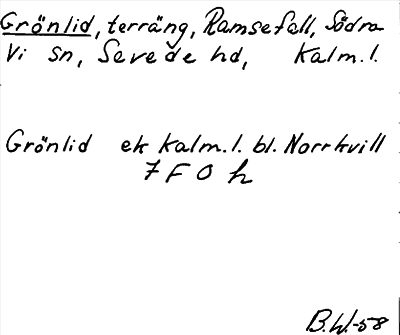 Grönlid, terräng, Ramsefall, Södra
Vi sn, Sevede hd, Kalm. l.
Grönlid ek Kalm. l. bl. Norrkvill
7 F 0 h
B.W.-58